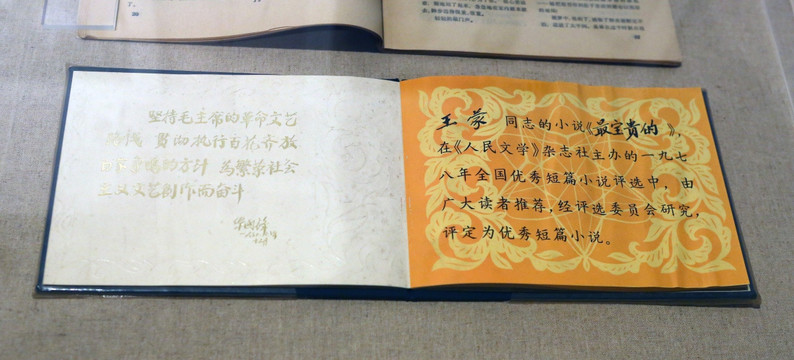 坚持毛主席的革命文艺
路线 贯彻执行百花齐放
的方针 为繁荣社会
主义文艺创作而奋斗
华国锋
王蒙 同志的小说《最宝贵的》，
在《人民文学》杂志社主办的一九七
八年全国优秀短篇小说评选中，由
广大读者推荐，经评选委员会研究，
评定为优秀短篇小说。